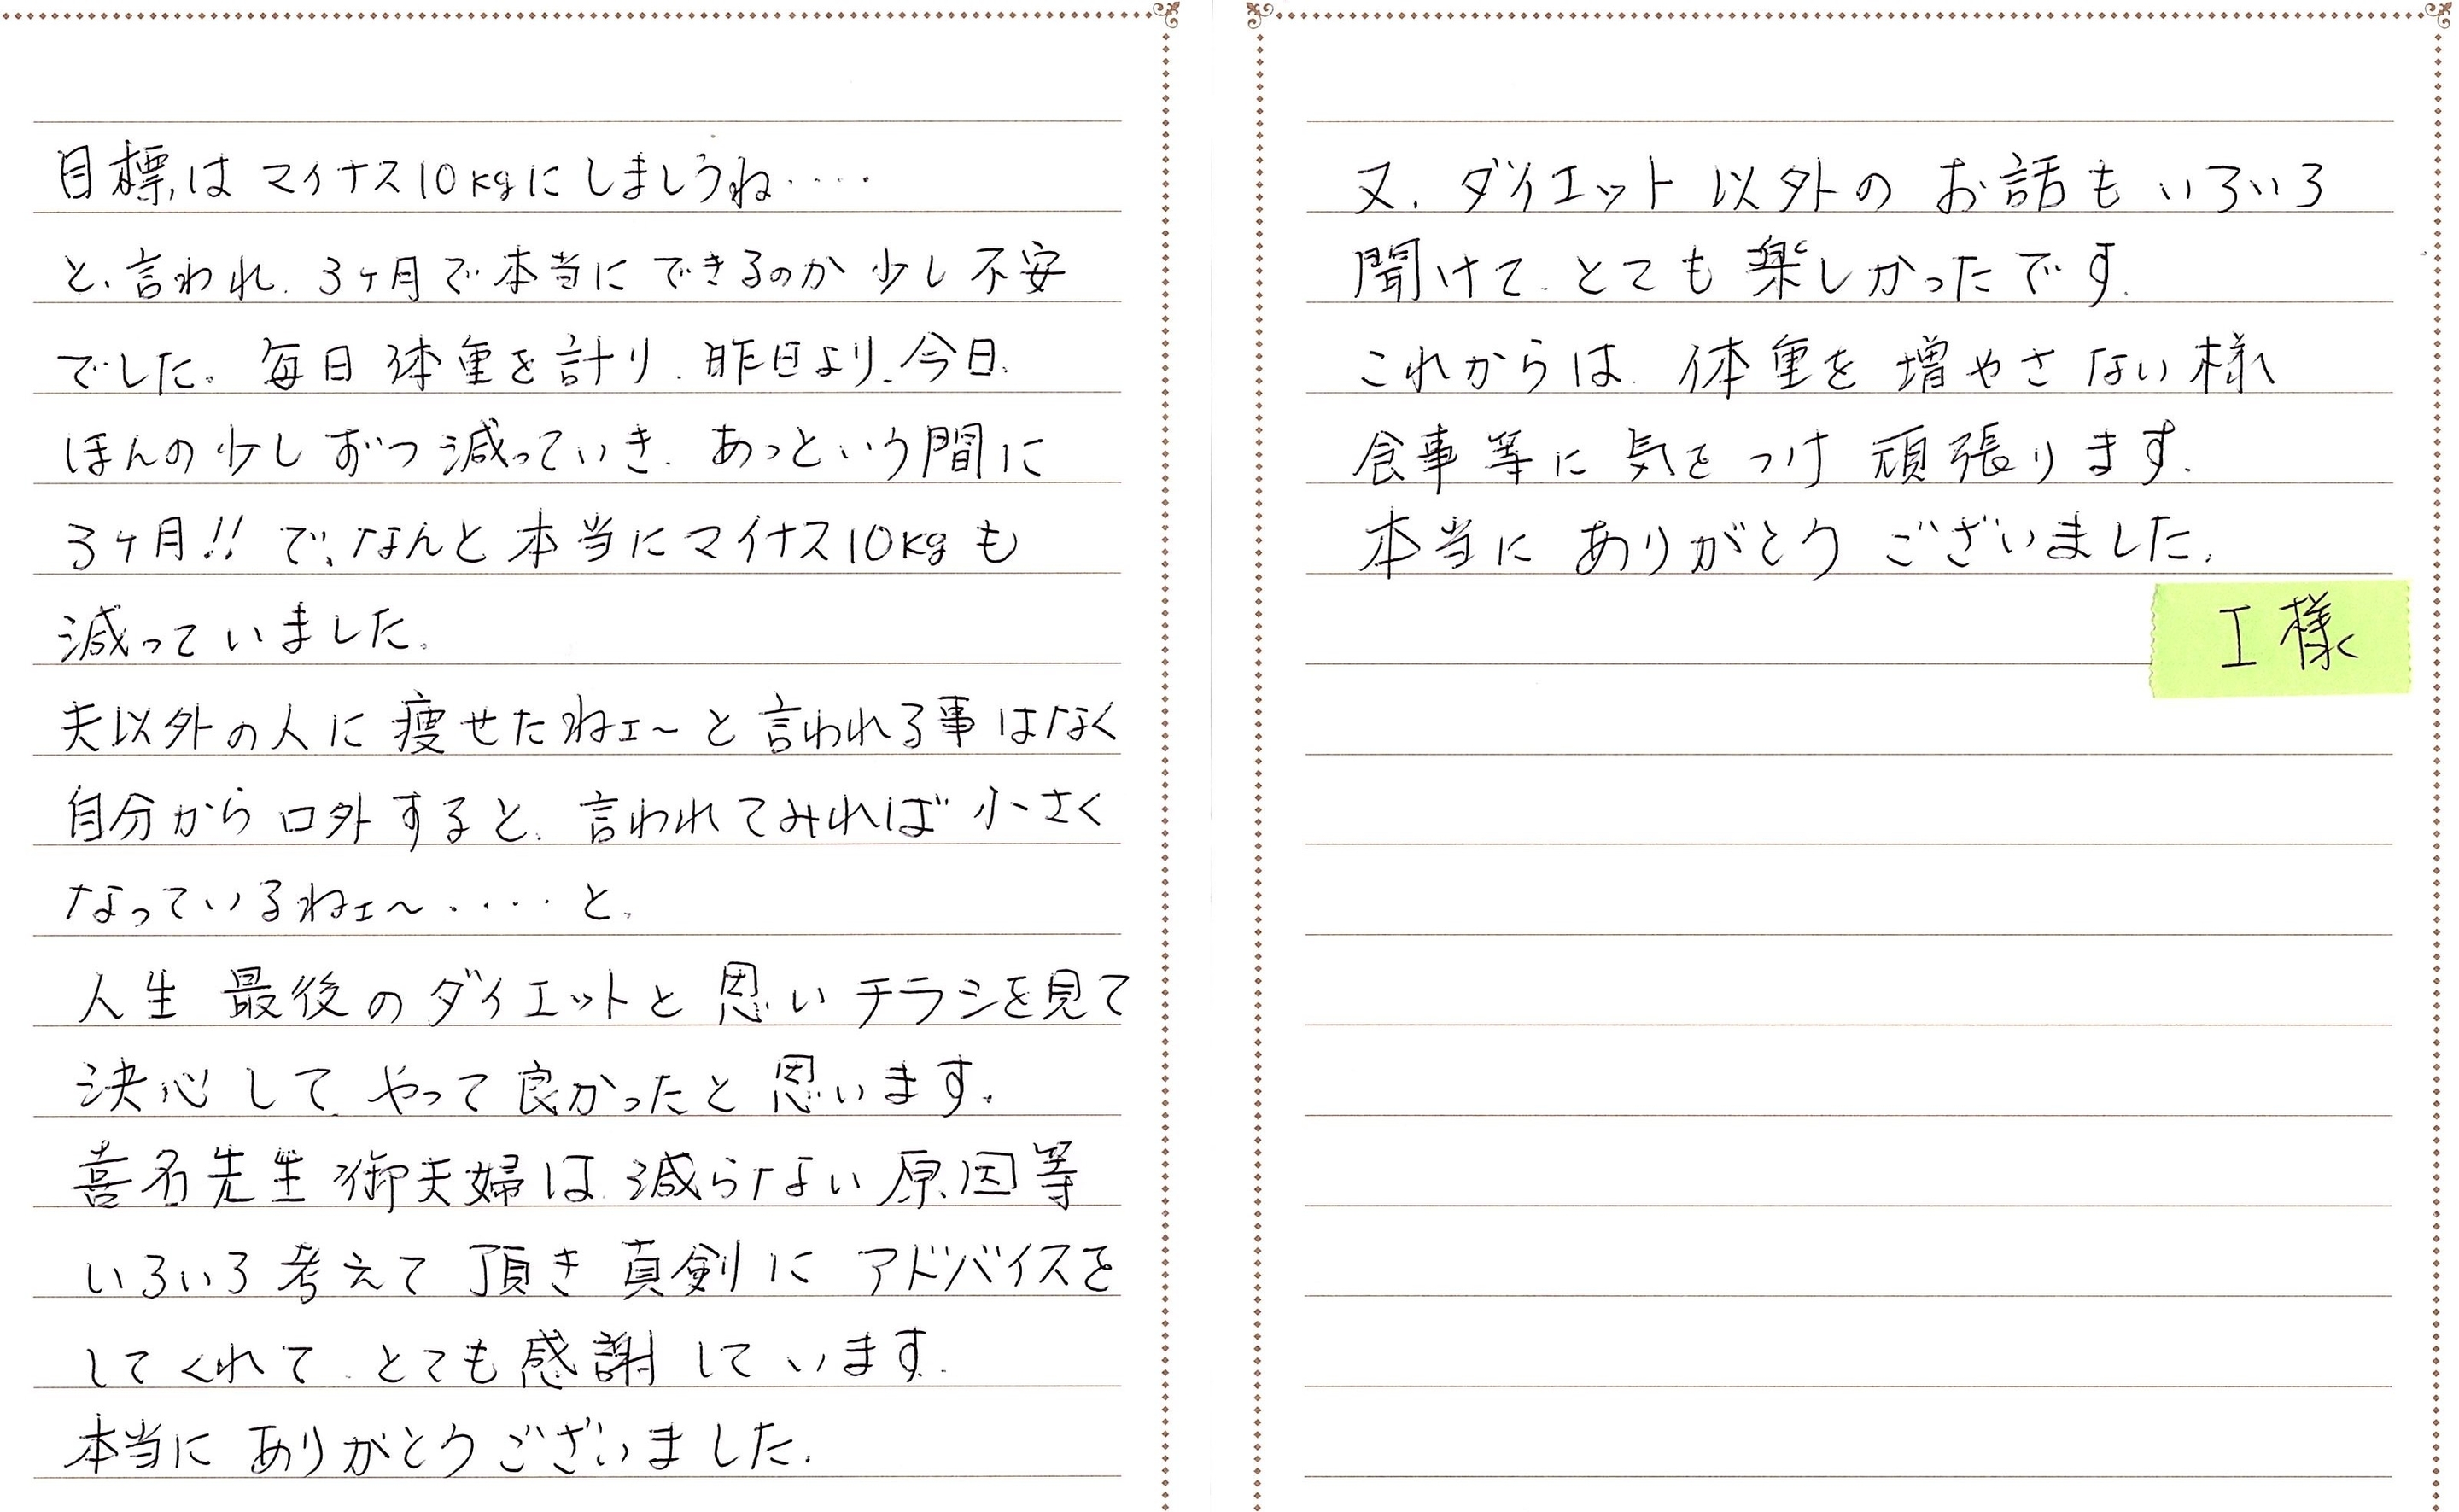 目標はマイナス10kgにしましうね‥‥
と、言われ、3ヶ月で本当にできるのか少し不安
でした。毎日体重を計り、昨日より、今日、
ほんの少しずつ減っていき、あっという間に
3ヶ月!!で、なんと本当にマイナス10kgも
減っていました。
夫以外の人に痩せたねェ～と言われる事はなく
自分から口外すると、言われてみれば小さく
なっているねェ～‥‥と、
人生最後のダイエットと思いチラシを見て
決心して、やって良かったと思います。
喜名先生御夫婦は、減らない原因等
いろいろ考えて頂き真剣にアドバイスを
してくれて、とても感謝しています。
本当にありがとうございました。
又、ダイエット以外のお話もいろいろ
聞けて、とても楽しかったです。
これからは、体重を増やさない様
食事等に気をつけ頑張ります。
本当にありがとうございました。
I様